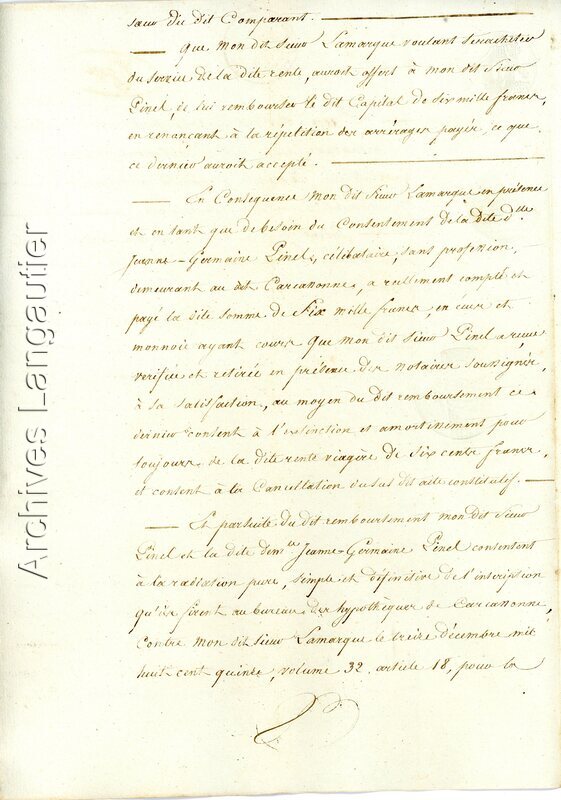 sœur du dit Comparant.
Que mon dit Sieur Lamarque voulant se racheter
du service de la dite rente, auroit offert à mon dit Sieur
Pinel, de lui rembourser le dit Capital de six mille francs,
en renonçant à la répétition des arrérages payés, ce que
ce dernier auroit accepté.
En Consequence mon dit Sieur Lamarque en présence
et en tant que de besoin du Consentement de la dite dlle
Jeanne-Germaine Pinel, célibataire, sans profession,
demeurant au dit Carcassonne, a réellement compté et
payé la dite somme de Six mille francs, en écus et
monnoie ayant cours que mon dit Sieur Pinel a reçue
verifiée et retirée en présence des notaires soussignés,
à sa satisfaction, au moyen du dit remboursement ce
dernier consent à l'extinction et amortissement pour
toujours de la dite rente viagère de six cents francs,
et consent à la Cancellation du sus dit acte constitutif.
Et par suite du dit remboursement mon dit Sieur
Pinel et la dite demlle Jeanne-Germaine Pinel consentent
à la radiation pure, simple et définitive de l'inscription
qu'ils firent au bureau des hypothèques de Carcassonne,
Contre mon dit Sieur Lamarque le treize décembre mil
huit cent quinze, volume 32, article 18, pour la
Archives Langautier